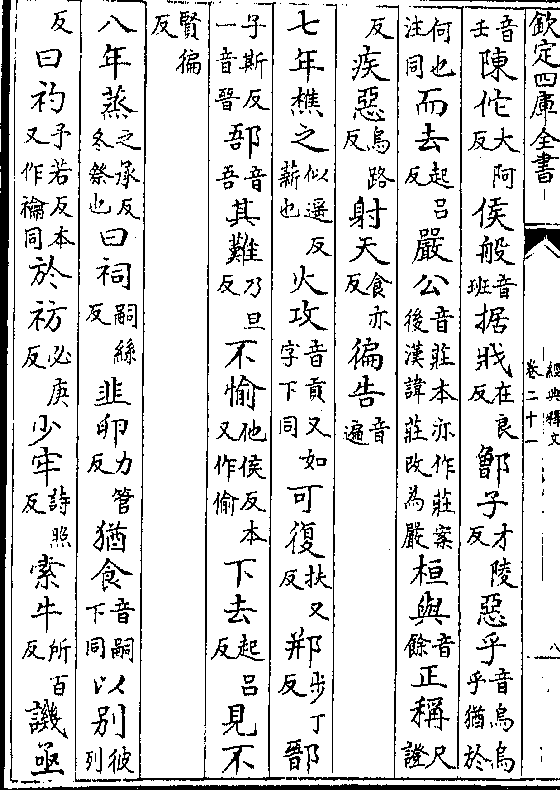 欽定四庫全書
經典釋文
卷二十一
八
音壬陳佗大阿反侯般音班据戕在良反鄫子才陵反惡乎音烏烏乎猶於
何也注同而去起吕反嚴公音莊本亦作莊案後漢諱莊改為嚴桓與音餘正稱尺證
反疾惡烏路反射天食亦反徧告音遍
七年樵之似遥反薪也火攻音貢又如字下同可復扶又反郱步丁反鄑
子斯反一音晉郚音吾其難乃旦反不愉他侯反本又作偷下去起吕反見不
賢徧反
八年蒸之承反冬祭也曰祠嗣絲反韭卵力管反猶食音嗣下同以别彼列
反曰礿予若反本又作禴同於祊必庚反少牢詩照反索牛所百反譏亟